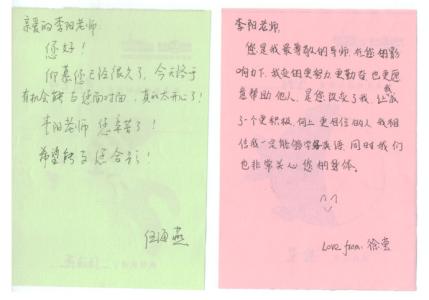 亲爱的李阳老师:
您好!
仰慕您已经很久了,今天终于
有机会能与您面对面,真的太开心了!
李阳老师 您辛苦了!
希望能与您合影!
伍海燕
李阳老师:
您是我最尊敬的导师 在您的影
响力下,我变得更努力 更勤奋 也更愿
意帮助他人,是您改变了我,让我成
了一个更积极 向上 更自信的人 我相
信我一定能够学好英语 同时我们
也非常关心您的身体。
Love from: 徐莹